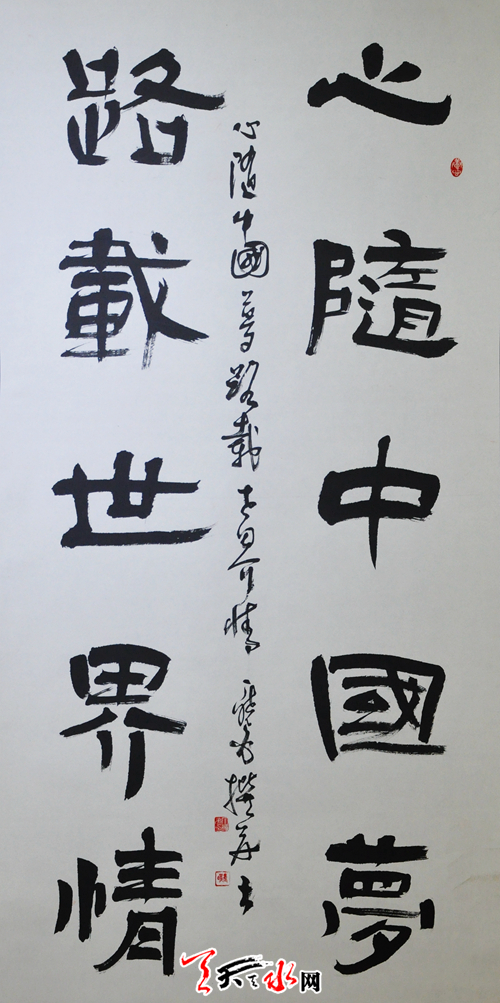 心隨中國夢
路載世界情
心隨中國夢路載世界情
天天天水网